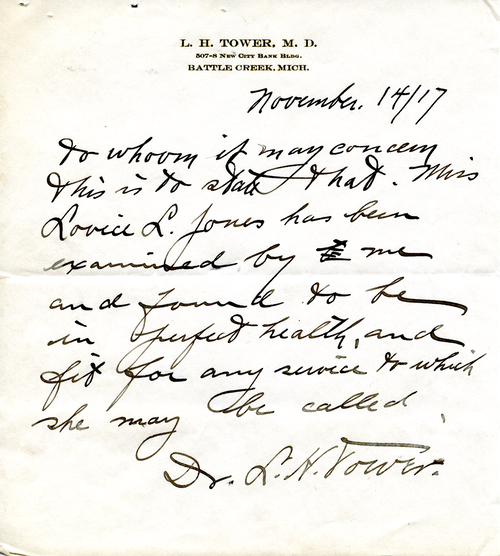 L. H. TOWER, M. D.
507-8 New City Bank Bldg.
BATTLE CREEK, MICH.
November. 14/17
To whom it may concern
This is to state that. Miss
Lovice L. Jones has been
examined by me
and found to be
in perfect health, and
fit for any service to which
she may be called.
Dr. L. H. Tower.